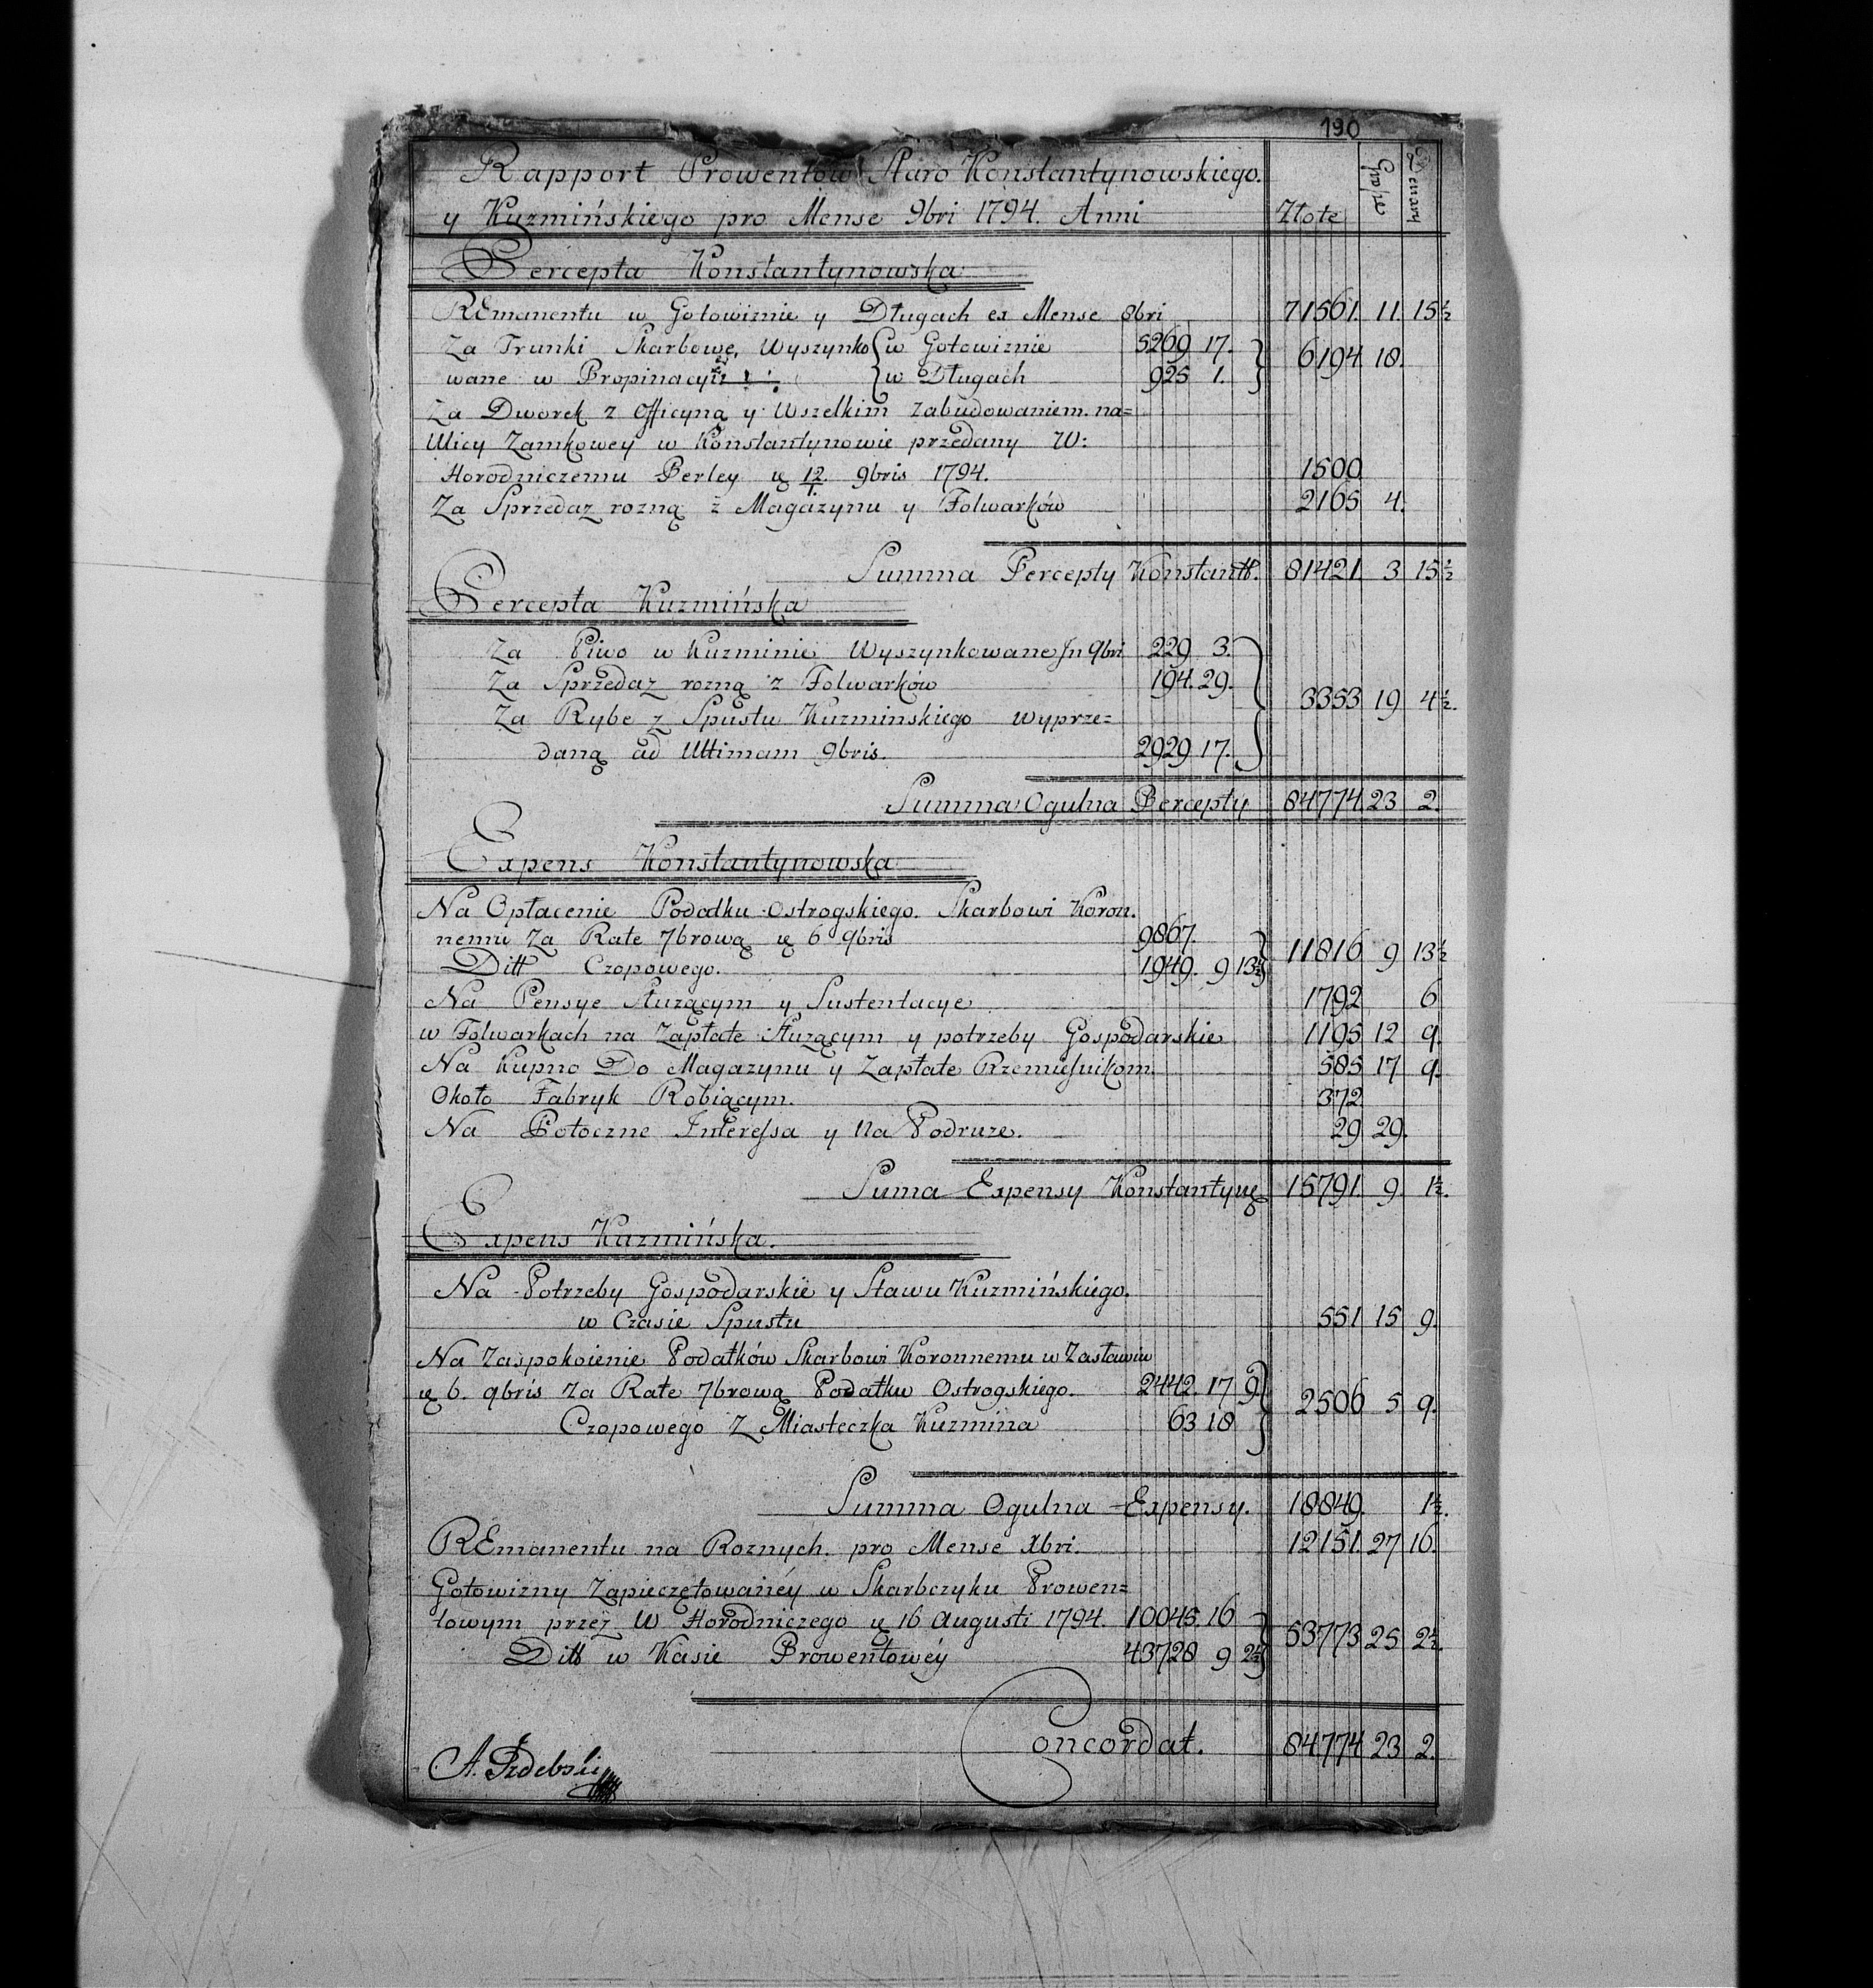 190
Rapport Prowentow Staro Konstantynowskiego.
y Kuzmińskiego pro Mense 9bri 1794. Anni Złote Grosze Denary
Percepta Konstantynowska
REmanentu w Gotowiznie y Długach ex Mense 8bri 71561. 11. 15½
Za Trunki Skarbowe, Wyszynko { w Gotowiznie 5269 17. } 6194. 18.
wane w Propinacyi { w Długach 925 1. }
Za Dworek z Officyną y Wszelkim zabudowaniem. na=
Ulicy Zamkowey w Konstantynowie przedany W:
Horodniczemu Perley 12/1. 9bris 1794. 1500
Za Sprzedaz rozną z Magazynu y Folwarków 2165 4.
Summa Percepty Konstantt. 81421. 3 15½
Percepta Kuzmińska
Za Piwo w Kuzminie Wyszynkowane Jn 9bri 229 3.
Za Sprzedaz rozną z Folwarków 194. 29. } 3353 19 4½.
Za Rybe z Spustu Kuzminskiego wyprze=
daną ad Ultimam 9bris. 2929 17.
Summa Ogulna Percepty 84774. 23 2.
Expens Konstantynowska
Na Opłacenie Podatku Ostrogskiego. Skarbowi Koron.
nemu Za Rate 7brową 6 9bris 9867. } 11816 9 13½
Ditt Czopowego. 1949. 9 13½
Na Pensye Służącym y Sustentacye 1792 6
w Folwarkach na Zapłate Służącym y potrzeby Gospodarskie 1195 12 9.
Na Kupno Do Magazynu y Zapłate Rzemieslnikom. 585 17 9.
Około Fabryk Robiącym. 372
Na Potoczne Interessa y Na Podruze. 29 29.
Suma Expensy Konstantyng 15791. 9. 1½.
Expens Kuzmińska.
Na Potrzeby Gospodarskie y Stawu Kuzmińskiego.
w Czasie Spustu 551 15 9.
Na Zaspokoienie Podatków Skarbowi Koronnemu w Zasławiu
6. 9bris Za Rate 7brową Podatku Ostrogskiego. 2442. 17 9 } 2506 5 9.
Czopowego z Miasteczka Kuzmina 63 18
Summa Ogulna Expensy. 18849. 1½.
REmanentu na Roznych. pro Mense Xbri. 12151. 27 16.
Gotowizny Zapieczętowanéy w Skarbczyku Prowen=
towym przez W Horodniczego 16 Augusti 1794. 10045. 16 } 53773 25 2½.
Ditt w Kasie Prowentowéy 43728 9 2½
Concordat. 84774 23 2.